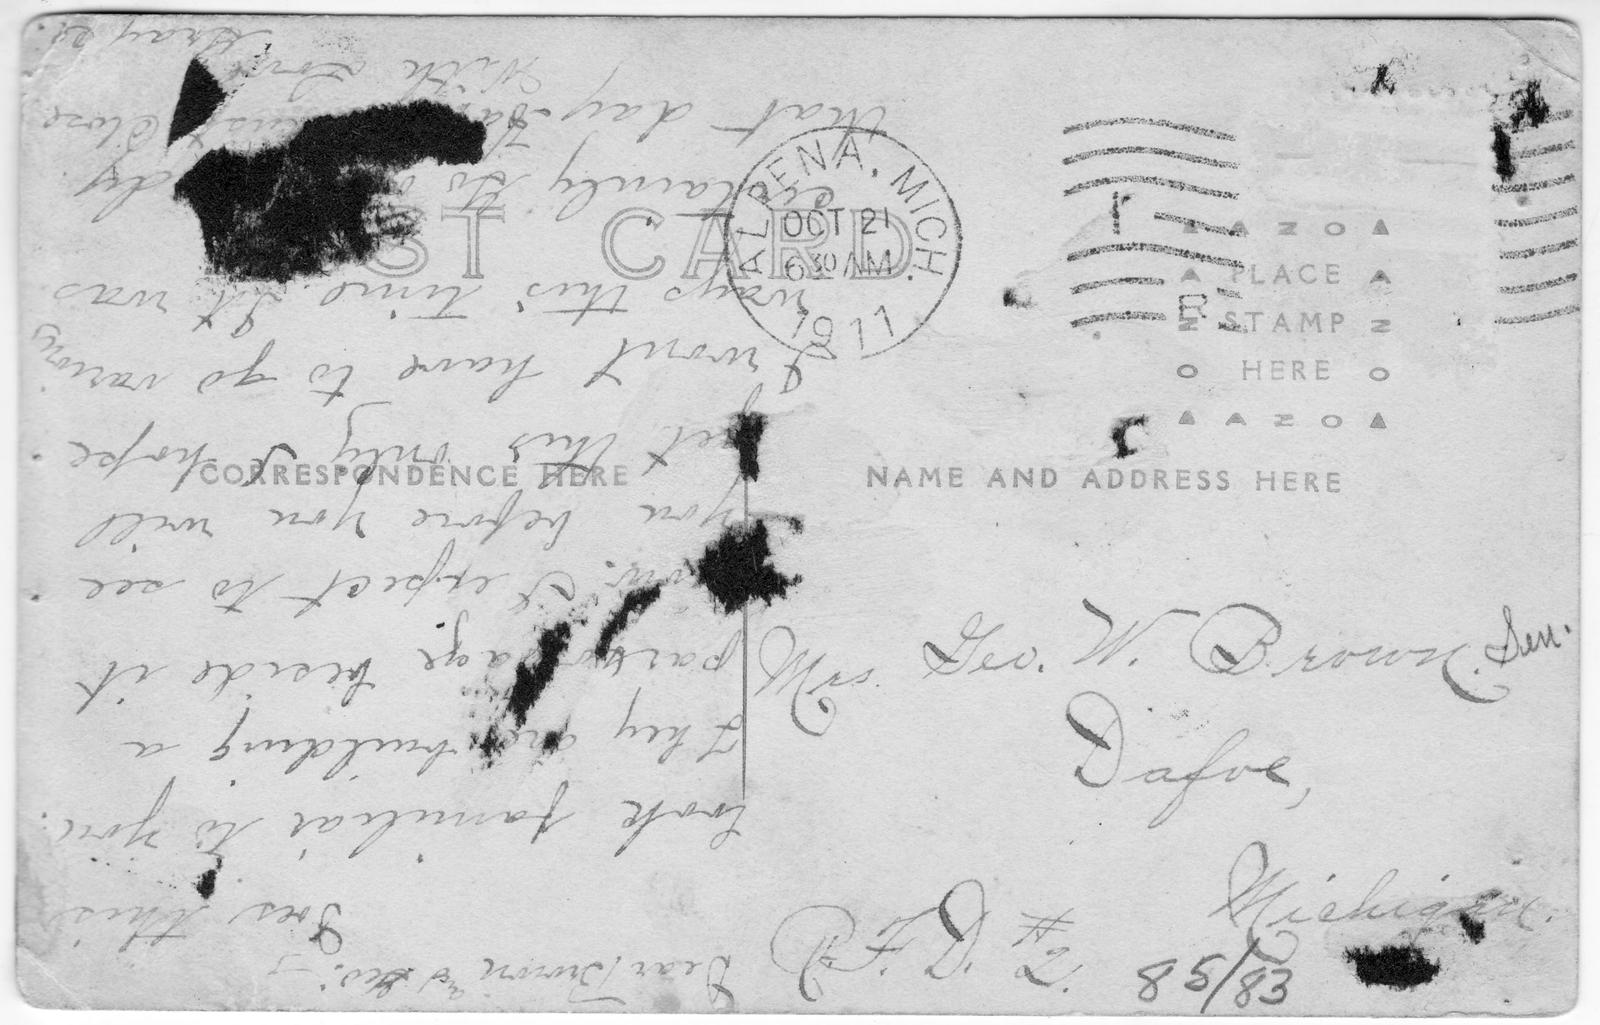 ST CARD
ALPENA, MICH.
OCT 21
6 30 AM
1911
AZO
PLACE
STAMP
HERE
AZO
CORRESPONDENCE HERE
NAME AND ADDRESS HERE
Mr. Geo. W. Brown Sen.
Dafoe,
Michigan
R F D # 2.
85/83
Dear
Does this
look familiar to you.
They are building a
parsonage beside it
now. I expect to see
you before you will
get this only I hope
I wont have to go
ways this time It was
certainly to
that day.
With Love